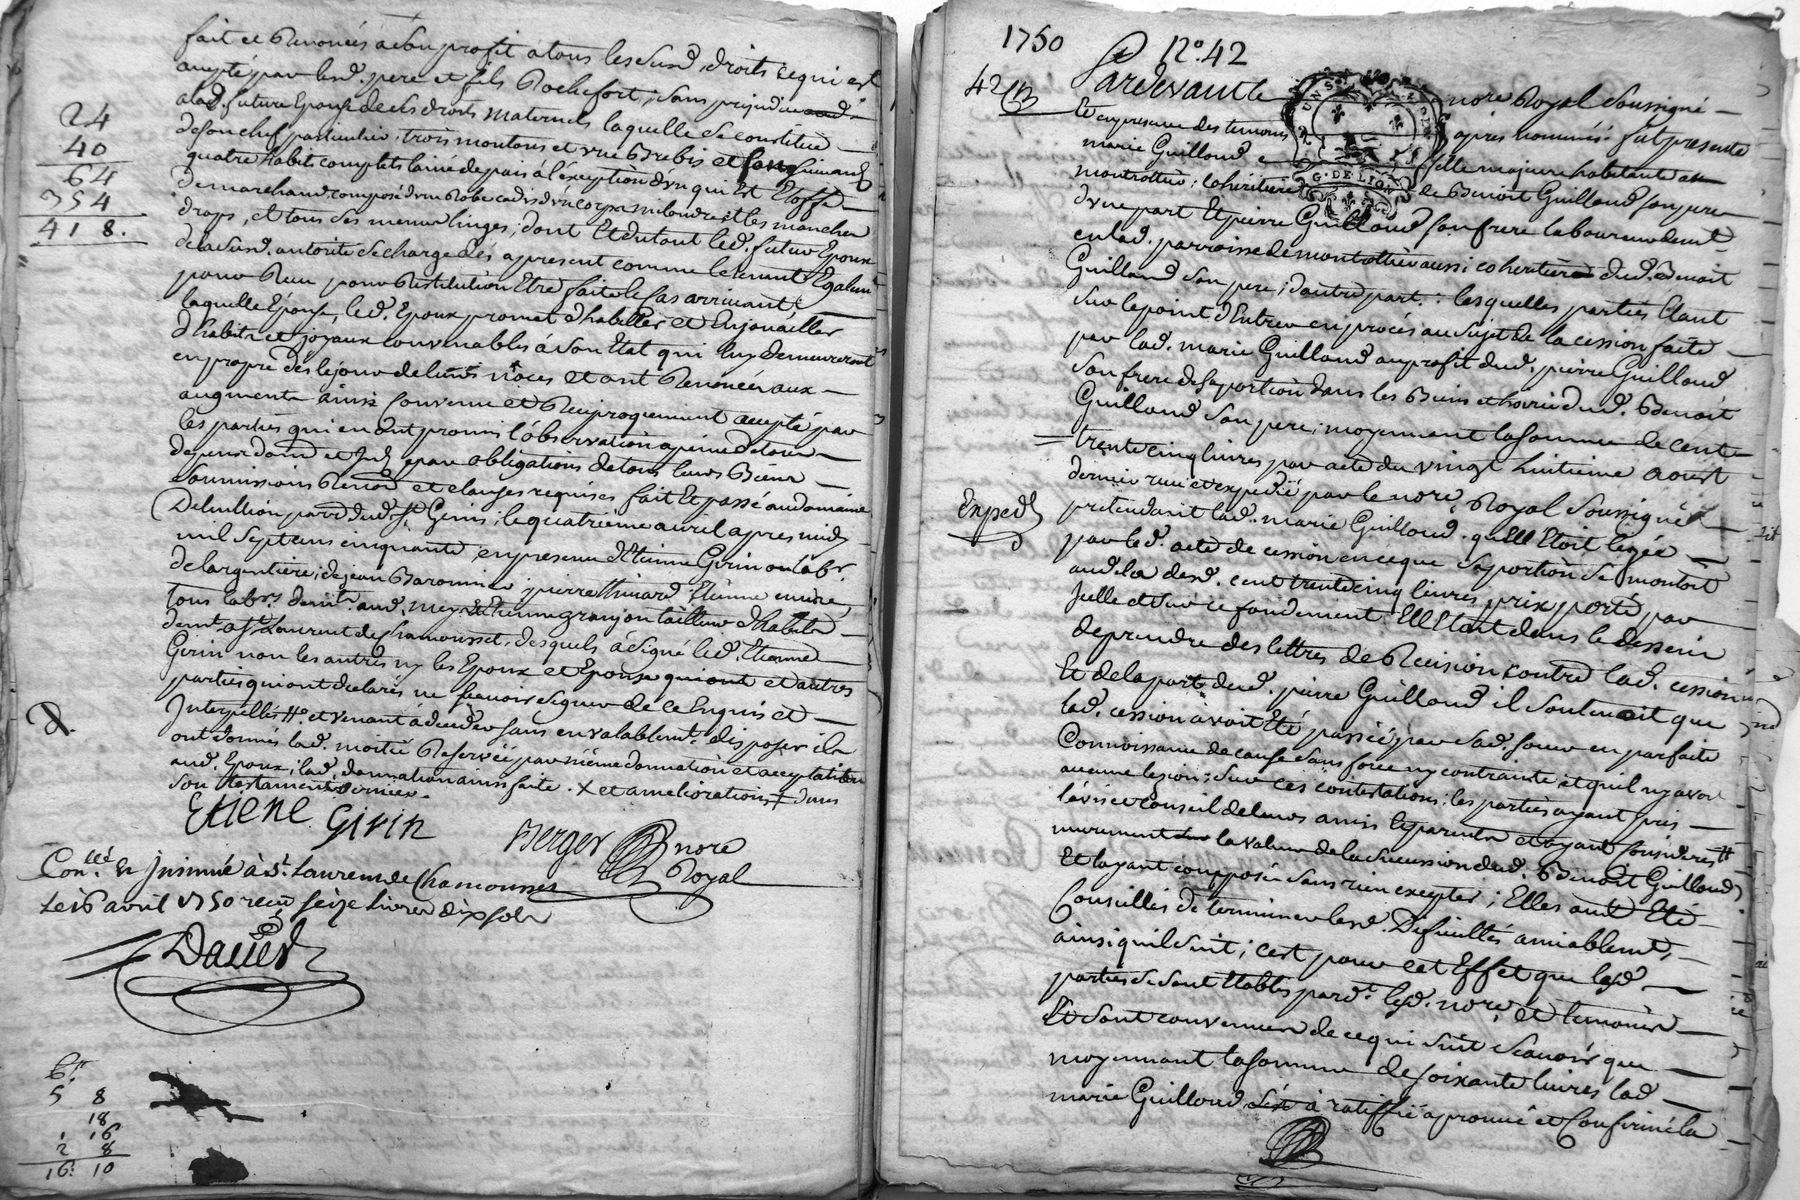 fait et Renoncés à son profit à tous les susd. droits ce qui est
accepté par lesd. pere et fils Rochefort, sans prejudice
a lad. future Epouse de ses droits maternels laquelle se constitue
de son chef particulier trois moutons et une Brebis et
quatre habit complets laine de pais à l'éxception d'un qui est Etoffe
de marchand, composé d'une Robe cadis d'un corps et les manches
draps, et tous ses menus linges, dont Et du tout led. futur Epoux
de la susd. autorité se charge dés apresent comme
pour Restitution Etre faite le cas arrivant
laquelle Epouse, led. Epoux promet d'habiller et Enjouailler
d'habits et joyaux convenables à son Etat qui luy demeureront
en propre dés le jour de leurs nôces et ont Renoncés aux
augments ainsi convenu et Reciproquement accepté par
les parties qui en ont promis l'observation a peine de tous
depens dom. et par obligations de tous leurs Biens
soumissions Renon. et clauses requises fait Et passé au domaine
pard. dud. St. Genis, le quatrieme avril apres midy
mil sept cens cinquante en presence d'Etienne Girin
de l'argentiere, de jean pierre Etienne
tous labrs. demts. aud. meys Et Etienne granjon tailleur d'habits
demt. a St. Laurent de chamousset, desquels à signé led. Etienne
Girin non les autres ny les Epoux et Epouse
parties qui ont declarés ne sçavoir signer de ce Enquis et
Interpellés et venant à deceder sans en valablemt. disposer ils
ont donnés lad. moitié Reservée par même donnation et acceptation
aud. Epoux, lad. donnation ainsi faite. X et ameliorations dans
son testament dernier.
Etiene Girin
Berger nore
Royal
Con.llé et Jnsinué à St. Laurent de Chamousset
le 16 avril 1750 reçu seize livres dix sols
Daviet
24
40
64
354
418.
5 8
18
1 16
2 8
16: 10
1750
No. 42
42
Pardevant le nore Royal soussigné
Et en presence des temoins apres nommés fut presente
marie Guilloud fille majeure habitante au
montrottier, coheritiere de Benoit Guilloud son pere
d'une part Et pierre Guilloud son frere laboureur demt.
en lad. parroisse de montrottier aussi coheritier dud. Benoit
Guilloud son pere, d'autre part. lesquelles parties Etant
sur le point d'Entrer en procés au sujet de la cession faite
par lad. marie Guilloud au profit dud. pierre Guilloud
son frere de sa portion dans les Biens et hoirie dud. Benoit
Guilloud son pere, moyennant la somme de cent
trente cinq livres par acte du vingt huitieme aoust
dernier reçu et expedié par le nore Royal soussigné
Exped
pretendant lad. marie Guilloud qu'Ell Etoit lezée
par led. acte de cession en ce que sa portion se montoit
audela desd. cent trente cinq livres prix porté par
Jcelle et sur ce fondement Ell Etoit dans le dessein
de prendre des lettres de Recision contre lad. cession
Et de la part dud. pierre Guilloud il soutenoit que
lad. cession avoit Eté passée par sad. soeur en parfaite
Connoissance de cause sans force ny contrainte et qu'il n'y avoit
aucune lezion: sur ces contestations, les parties ayant pris
l'avis et conseil de leurs amis Et parents et ayant considerés
murement la valeur de la succession dud. Benoit Guilloud
Et l'ayant composée sans rien excepter; Elles ont Eté
Conseillés de terminer lesd. Difficultés amiablemt.
ainsi qu'il suit; c'est pour cet Effet que lesd.
parties se sont Etablis pardt. led. nore et temoins
Et sont convenues de ce qui suit sçavoir que
moyennant la somme de soixante livres lad.
marie Guilloud à ratiffié aprouvé et Confirmé la
G. DE LION